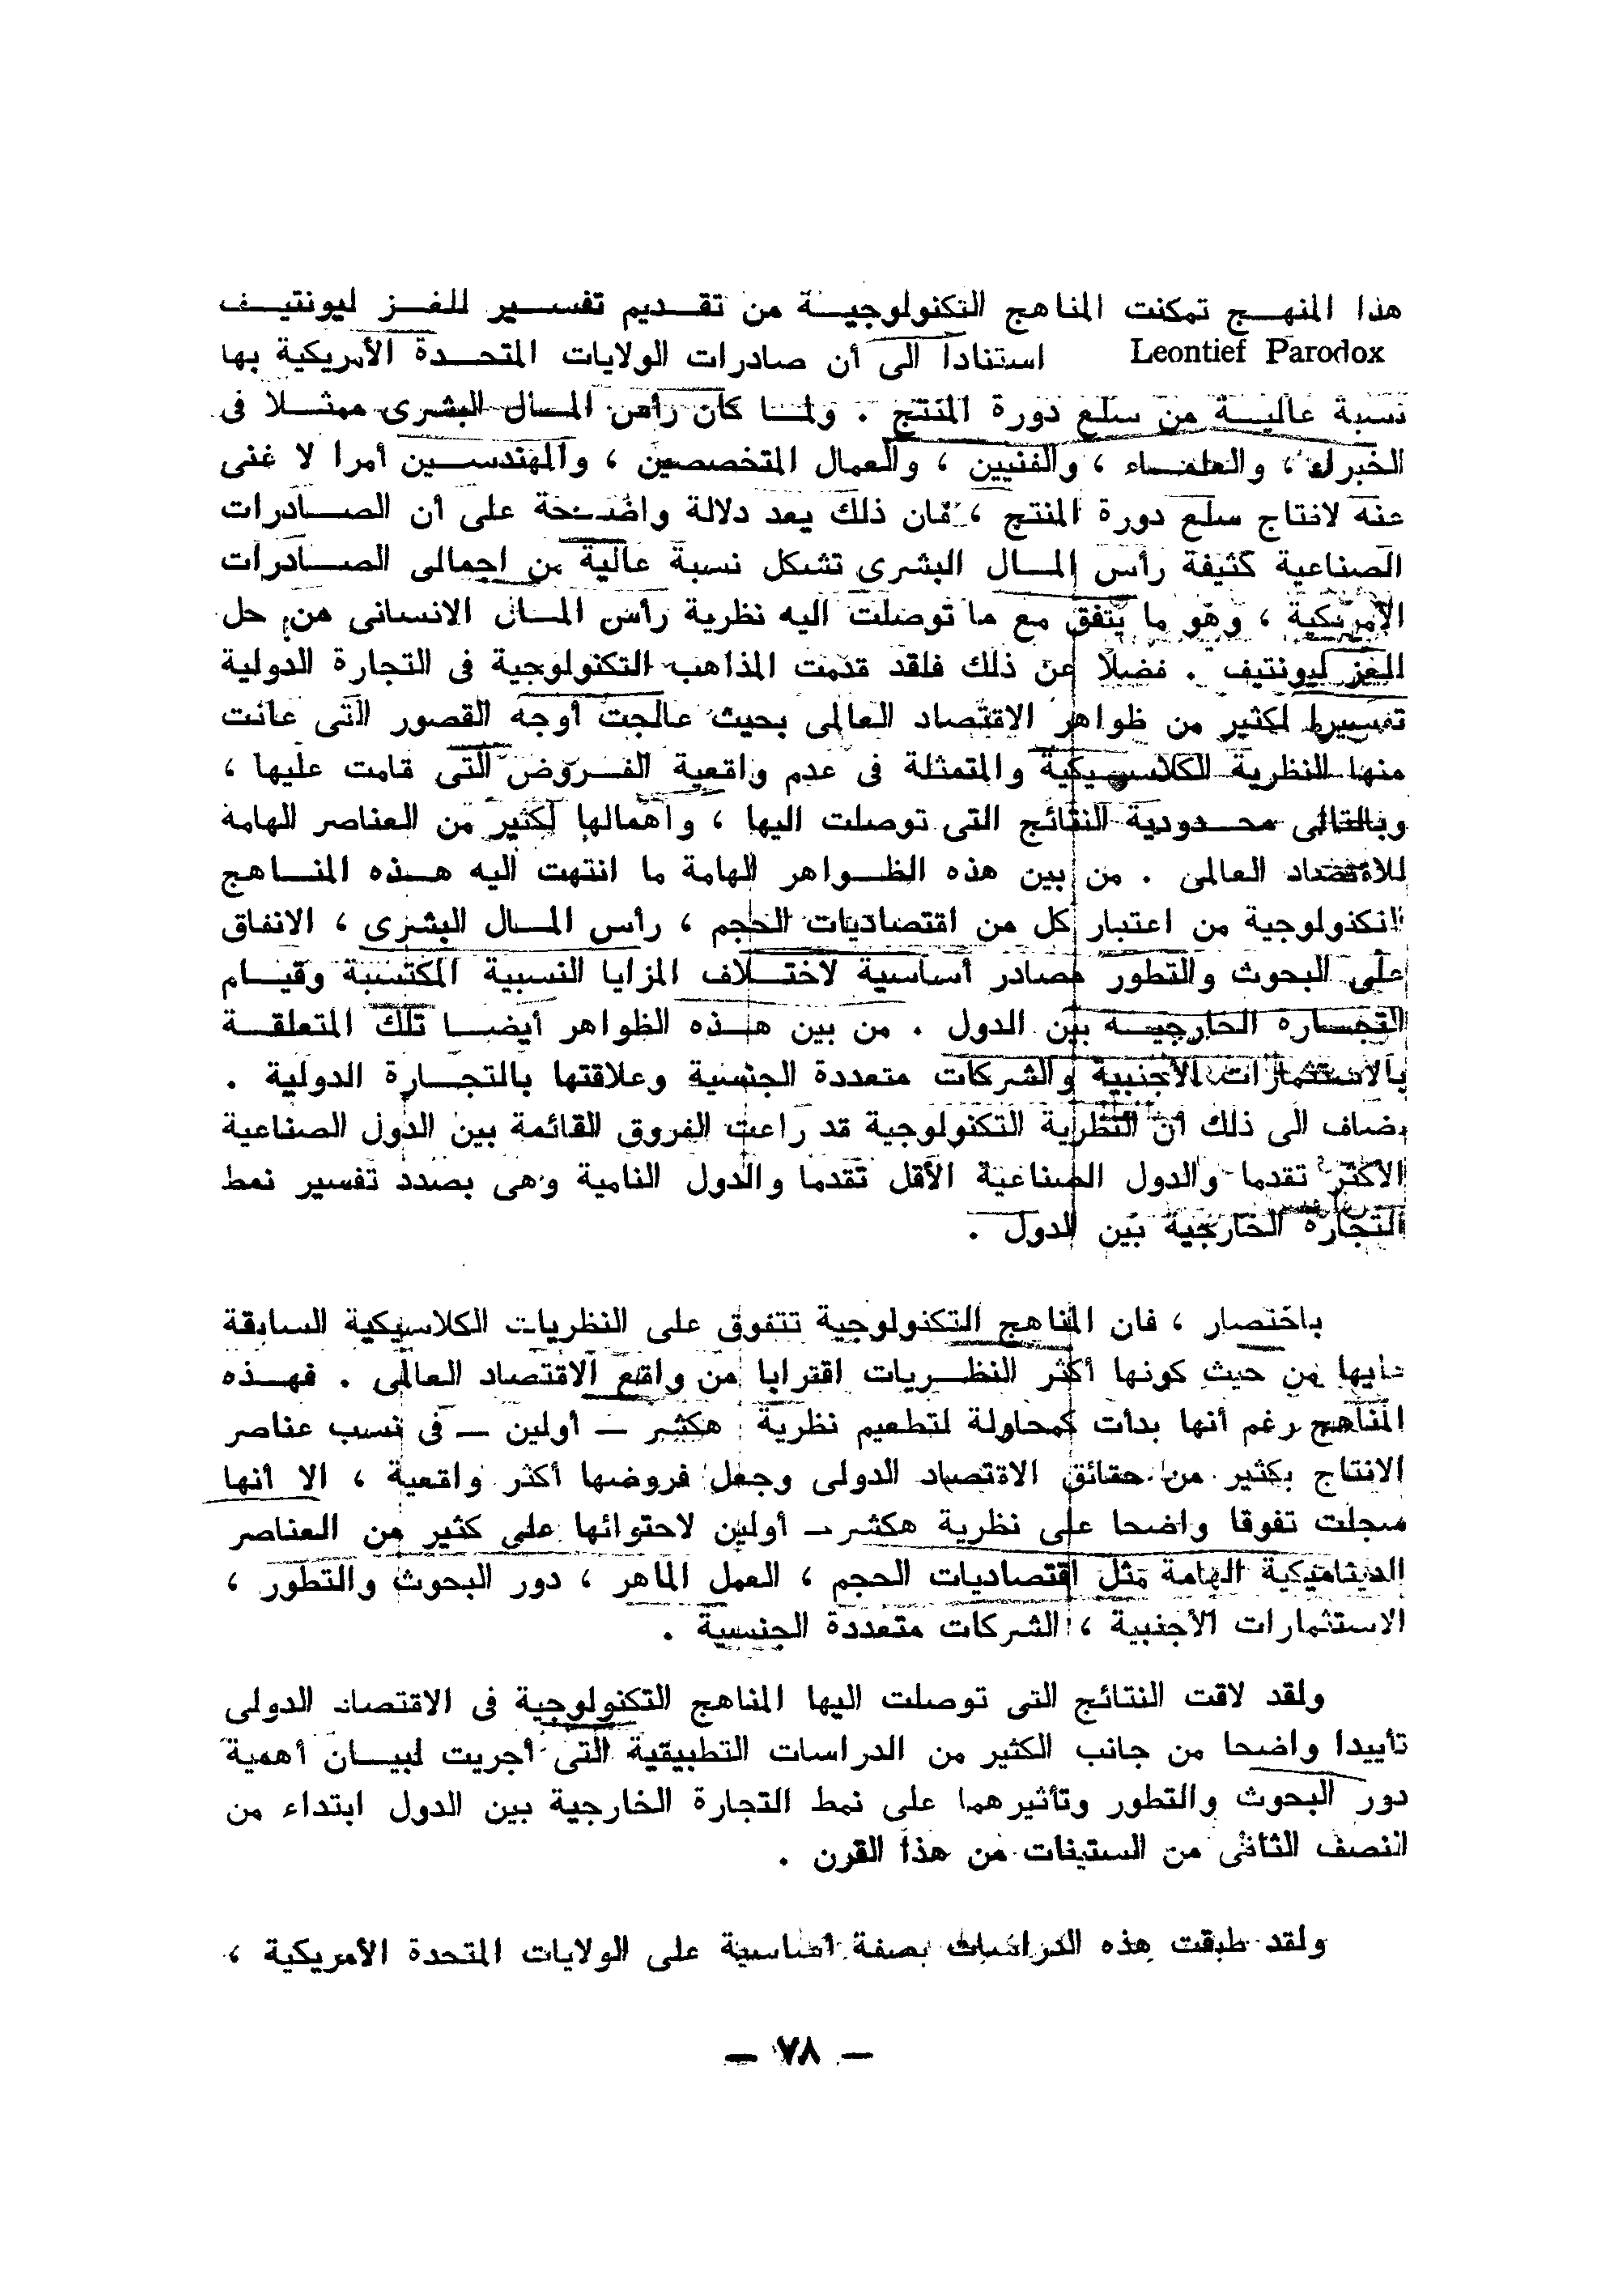 هذا المنهج تمكنت المناهج التكنولوجية من تقديم تفسير للغز ليونتيف
Leontief Parodox استنادا الى أن صادرات الولايات المتحدة الأمريكية بها
نسبة عالية من سلع دورة المنتج . ولما كان رأس المال البشرى ممثلا فى
الخبراء ، والعلماء ، والفنيين ، والعمال المتخصصين ، والمهندسين أمرا لا غنى
عنه لانتاج سلع دورة المنتج ، فان ذلك يعد دلالة واضحة على أن الصادرات
الصناعية كثيفة رأس المال البشرى تشكل نسبة عالية من اجمالى الصادرات
الأمريكية ، وهو ما يتفق مع ما توصلت اليه نظرية رأس المال الانسانى من حل
للغز ليونتيف . فضلا عن ذلك فلقد قدمت المذاهب التكنولوجية فى التجارة الدولية
تفسيرا لكثير من ظواهر الاقتصاد العالمى بحيث عالجت أوجه القصور التى عانت
منها النظرية الكلاسيكية والمتمثلة فى عدم واقعية الفروض التى قامت عليها ،
وبالتالى محدودية النتائج التى توصلت اليها ، واهمالها لكثير من العناصر الهامة
للاقتصاد العالمى . من بين هذه الظواهر الهامة ما انتهت اليه هذه المناهج
التكنولوجية من اعتبار كل من اقتصاديات الحجم ، رأس المال البشرى ، الانفاق
على البحوث والتطور مصادر أساسية لاختلاف المزايا النسبية المكتسبة وقيام
التجارة الخارجية بين الدول . من بين هذه الظواهر أيضا تلك المتعلقة
بالاستثمارات الأجنبية والشركات متعددة الجنسية وعلاقتها بالتجارة الدولية .
يضاف الى ذلك أن النظرية التكنولوجية قد راعت الفروق القائمة بين الدول الصناعية
الأكثر تقدما والدول الصناعية الأقل تقدما والدول النامية وهى بصدد تفسير نمط
التجارة الخارجية بين الدول .
باختصار ، فان المناهج التكنولوجية تتفوق على النظريات الكلاسيكية السابقة
عليها من حيث كونها أكثر النظريات اقترابا من واقع الاقتصاد العالمى . فهذه
المناهج رغم أنها بدأت كمحاولة لتطعيم نظرية هكشر — أولين — فى نسب عناصر
الانتاج بكثير من حقائق الاقتصاد الدولى وجعل فروضها أكثر واقعية ، الا أنها
سجلت تفوقا واضحا على نظرية هكشر — أولين لاحتوائها على كثير من العناصر
الديناميكية الهامة مثل اقتصاديات الحجم ، العمل الماهر ، دور البحوث والتطور ،
الاستثمارات الأجنبية ، الشركات متعددة الجنسية .
ولقد لاقت النتائج التى توصلت اليها المناهج التكنولوجية فى الاقتصاد الدولى
تأييدا واضحا من جانب الكثير من الدراسات التطبيقية التى أجريت لبيان أهمية
دور البحوث والتطور وتأثيرهما على نمط التجارة الخارجية بين الدول ابتداء من
النصف الثانى من الستينات من هذا القرن .
ولقد طبقت هذه الدراسات بصفة أساسية على الولايات المتحدة الأمريكية ،
— ٧٨ —